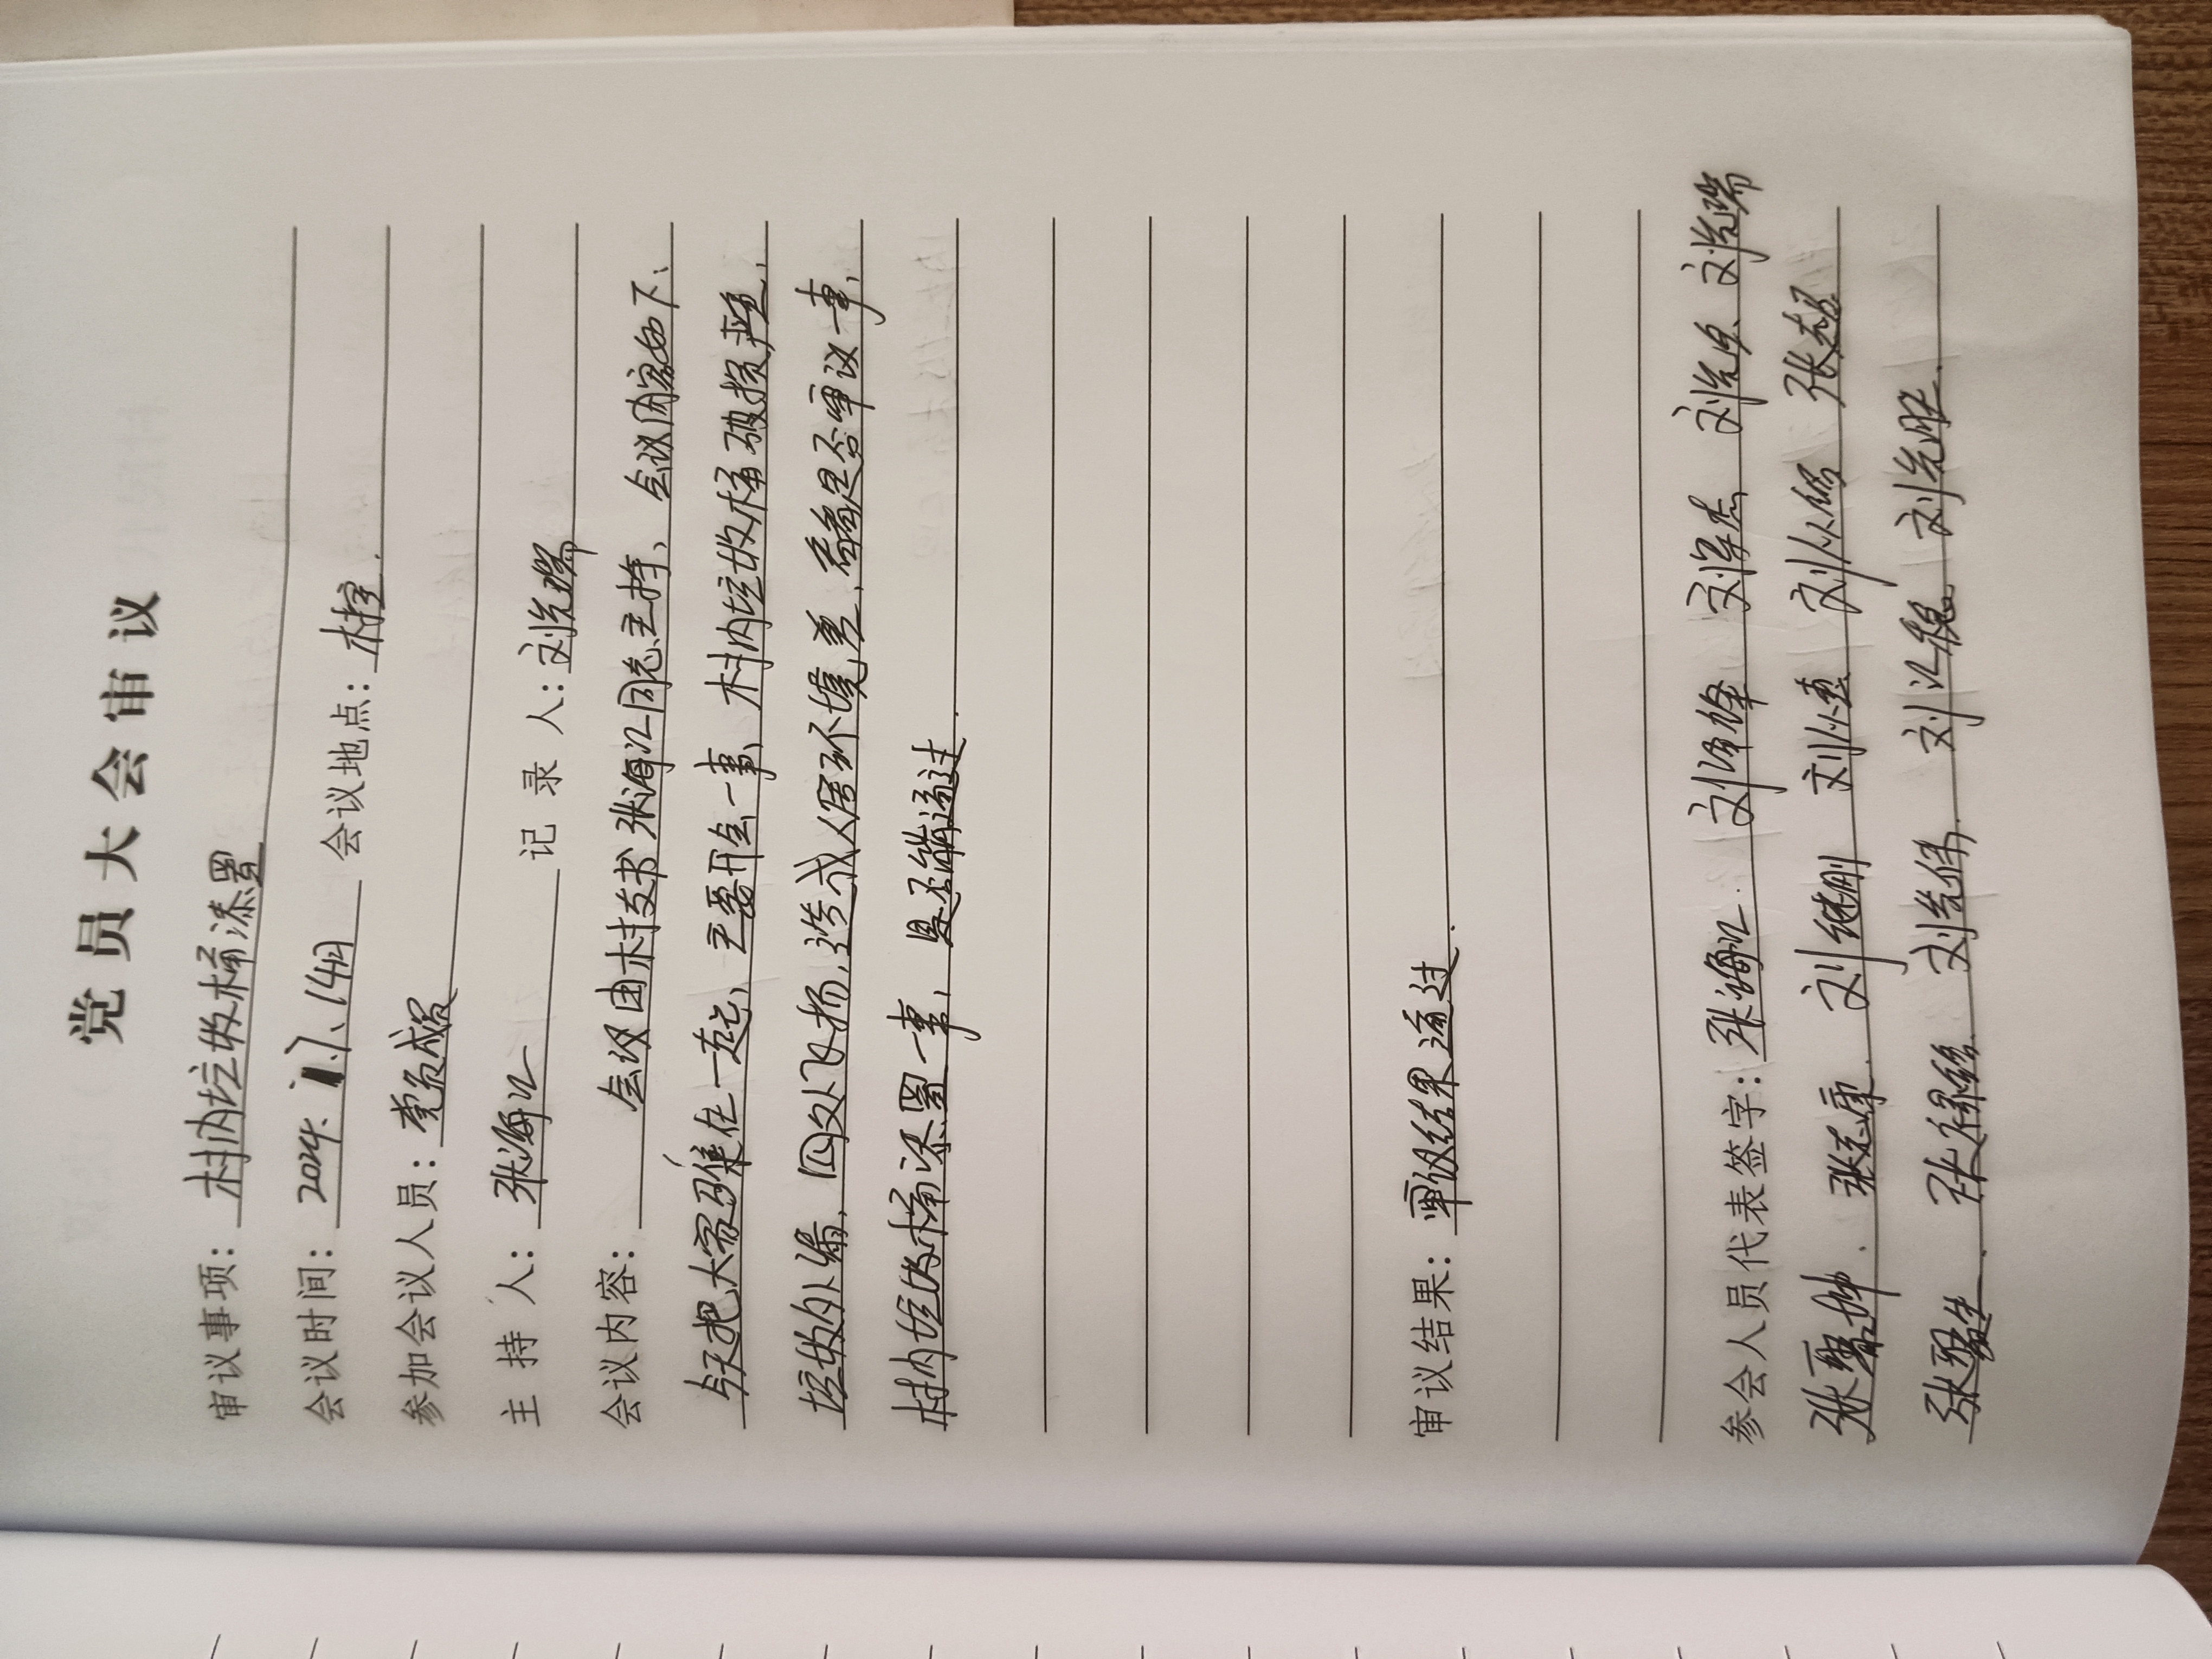 党员大会审议
审议事项：村内垃圾桶添置
会议时间：2024. 14日 会议地点：村室.
参加会议人员：党员成员
主持人：张海江 记录人：刘先瑞
会议内容： 会议由村支书张海江同志主持、会议内容如下、
今天把大家召集在一起，主要开会一事，村内垃圾桶破损严重，
垃圾外漏，四处飞扬，造成人居环境差，看看是否审议一事，
村内垃圾桶添置一事，是否能通过.
审议结果：审议结果通过.
参会人员代表签字：张海江. 刘泽锋 刘 杰 刘先 、刘先瑞
张 坤. 张志康. 刘继刚 刘 刘从 张超
张 生. 张 刘先伟. 刘 稳. 刘先胜.